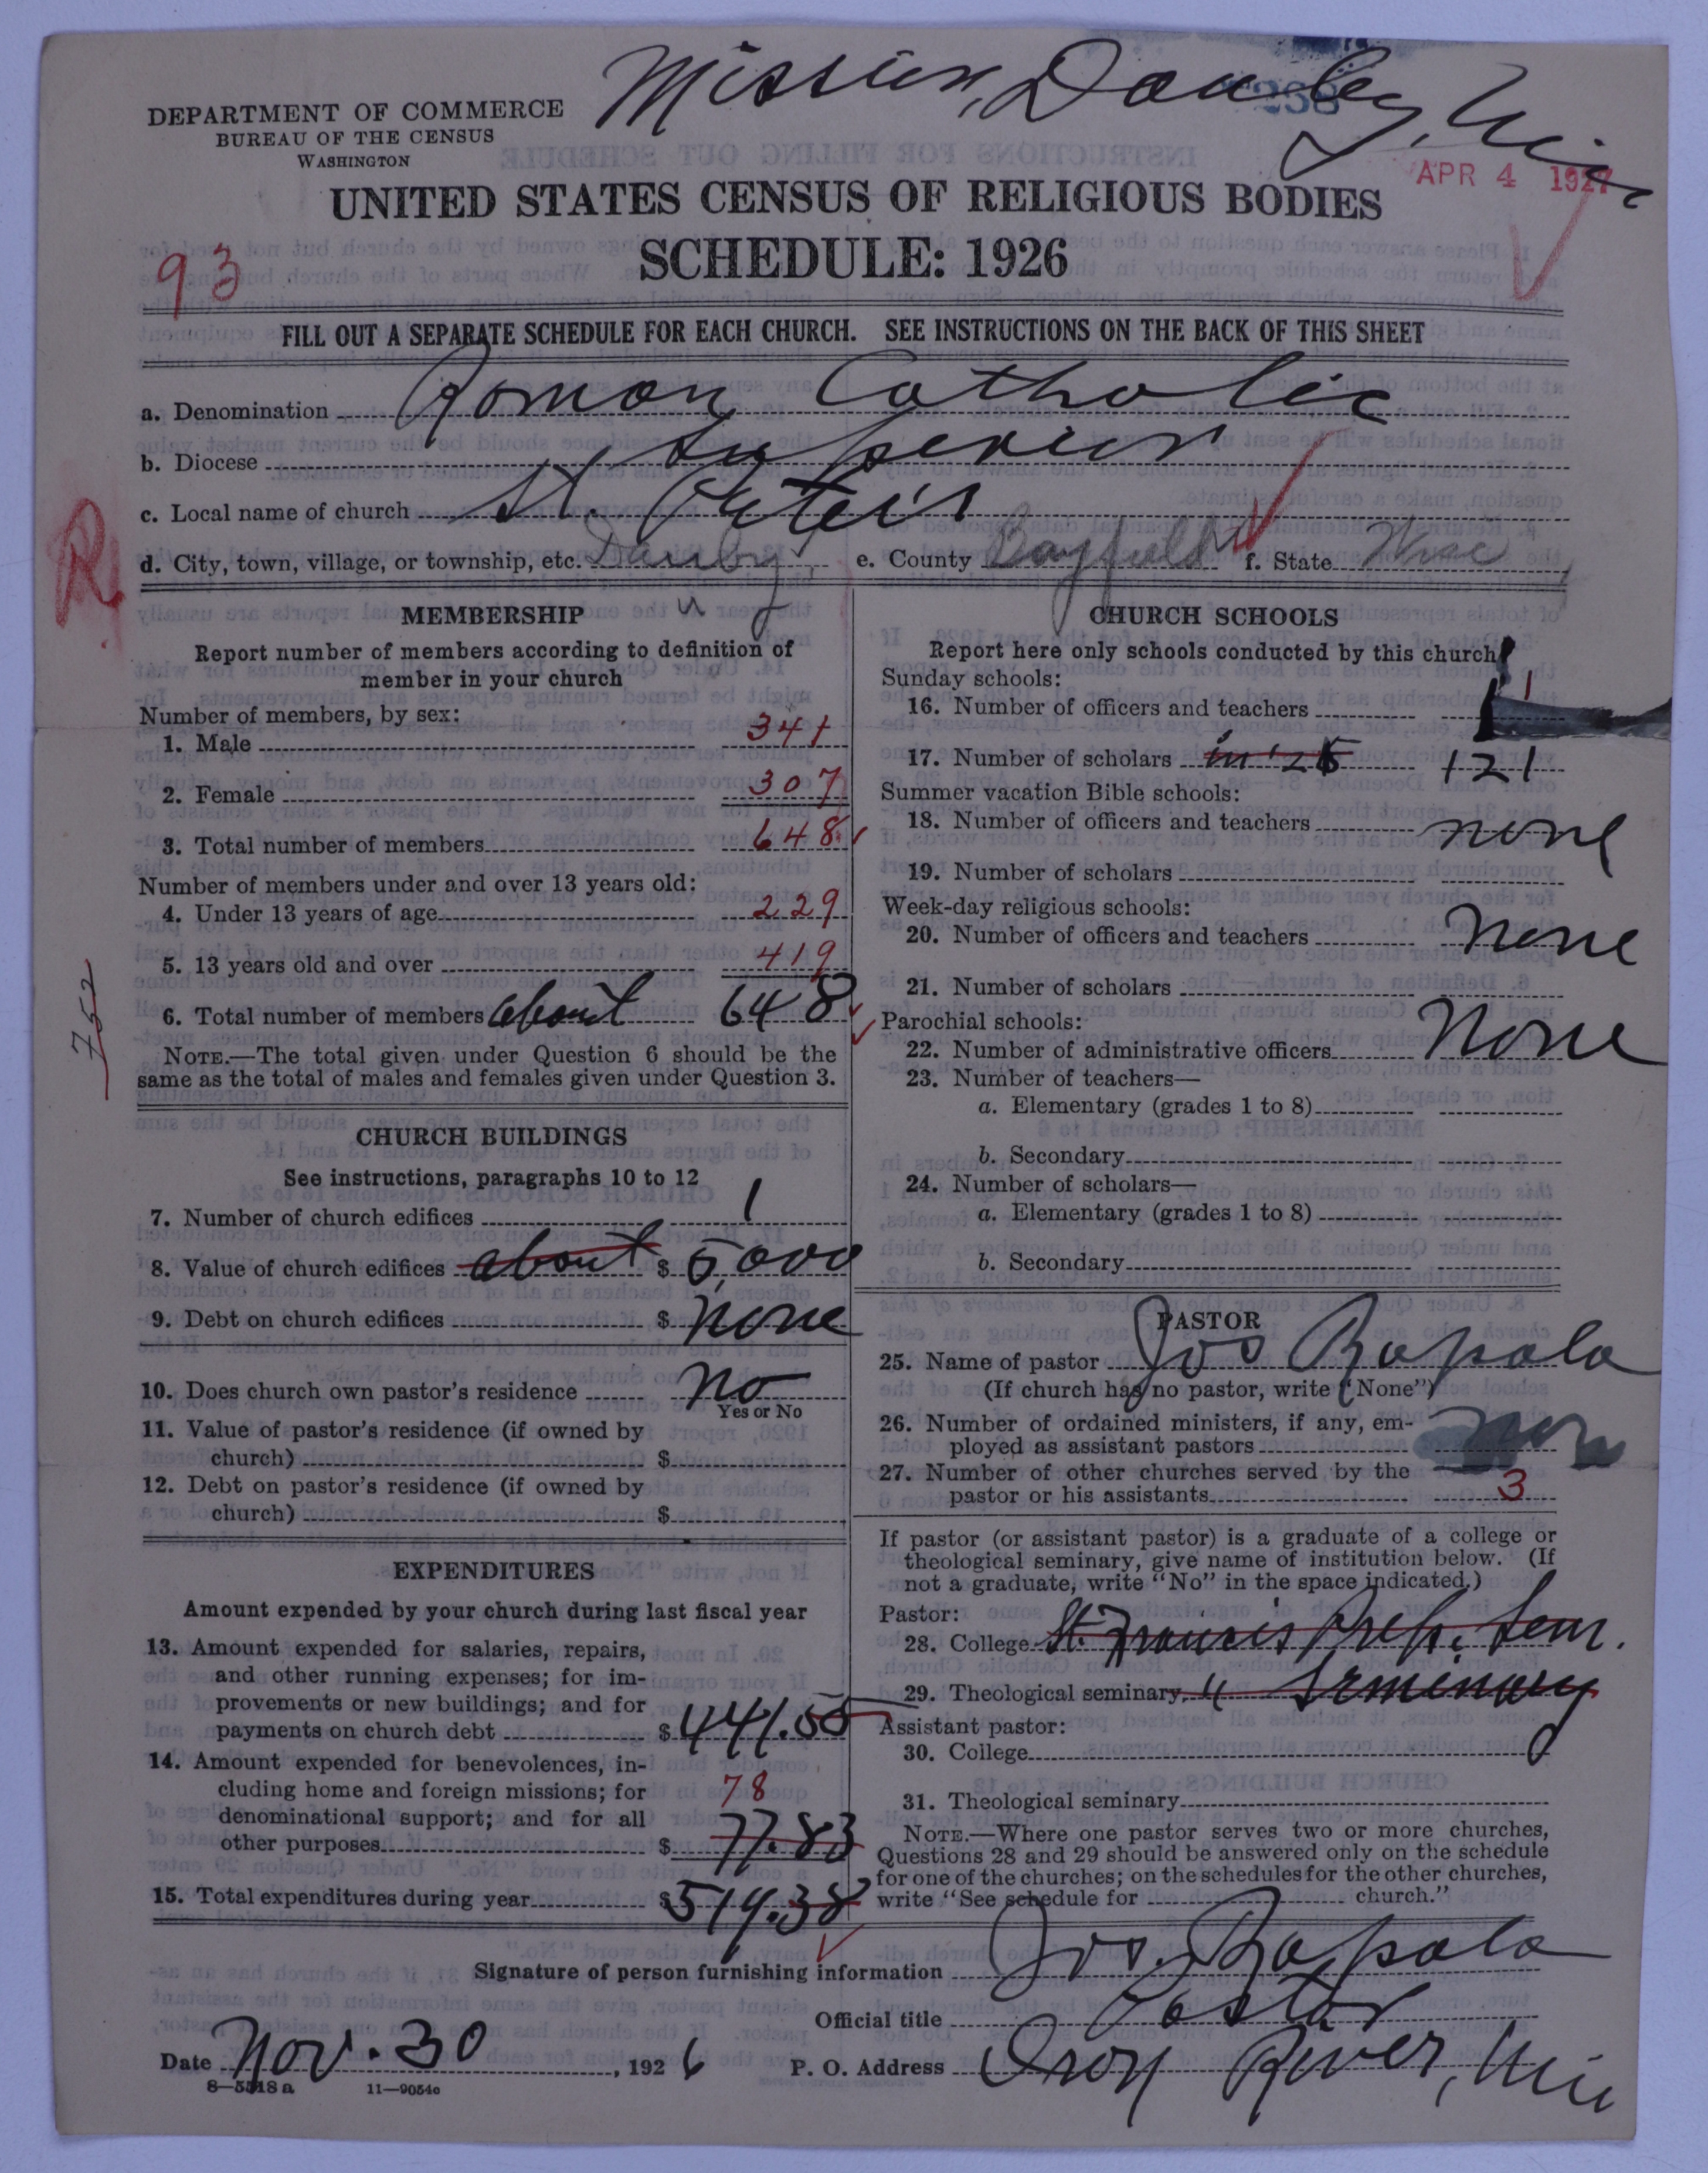 Mission, Dauby, Wis
DEPARTMENT OF COMMERCE
BUREAU OF THE CENSUS
WASHINGTON
APR 4 1927
UNITED STATES CENSUS OF RELIGIOUS BODIES
SCHEDULE: 1926
93
FILL OUT A SEPARATE SCHEDULE FOR EACH CHURCH. SEE INSTRUCTIONS ON THE BACK OF THIS SHEET
a. Denomination Roman Catholic
b. Diocese Superior
c. Local name of church St. Peter's
R
d. City, town, village, or township, etc. Dauby e. County Bayfield f. State Wisc
u
MEMBERSHIP
Report number of members according to definition of
member in your church
Number of members, by sex:
1. Male 341
2. Female 307
3. Total number of members 648
Number of members under and over 13 years old:
4. Under 13 years of age 229
5. 13 years old and over 419
6. Total number of members about 648
752
NOTE.—The total given under Question 6 should be the
same as the total of males and females given under Question 3.
CHURCH BUILDINGS
See instructions, paragraphs 10 to 12
7. Number of church edifices 1
8. Value of church edifices about $ 5,000
9. Debt on church edifices $ none
10. Does church own pastor's residence no
Yes or No
11. Value of pastor's residence (if owned by
church) $
12. Debt on pastor's residence (if owned by
church) $
EXPENDITURES
Amount expended by your church during last fiscal year
13. Amount expended for salaries, repairs,
and other running expenses; for im-
provements or new buildings; and for
payments on church debt $ 441.55
14. Amount expended for benevolences, in-
cluding home and foreign missions; for 78
denominational support; and for all
other purposes $ 77.83
15. Total expenditures during year $ 519.38
CHURCH SCHOOLS
Report here only schools conducted by this church
Sunday schools:
16. Number of officers and teachers 1
17. Number of scholars in '25 121
Summer vacation Bible schools:
18. Number of officers and teachers none
19. Number of scholars
Week-day religious schools:
20. Number of officers and teachers None
21. Number of scholars
Parochial schools:
22. Number of administrative officers None
23. Number of teachers—
a. Elementary (grades 1 to 8)
b. Secondary
24. Number of scholars—
a. Elementary (grades 1 to 8)
b. Secondary
PASTOR
25. Name of pastor Jos Rapala
(If church has no pastor, write "None")
26. Number of ordained ministers, if any, em-
ployed as assistant pastors
27. Number of other churches served by the
pastor or his assistants 3
If pastor (or assistant pastor) is a graduate of a college or
theological seminary, give name of institution below. (If
not a graduate, write "No" in the space indicated.)
Pastor:
28. College St. Francis Prep. Sem.
29. Theological seminary " Seminary
Assistant pastor:
30. College
31. Theological seminary
NOTE.—Where one pastor serves two or more churches,
Questions 28 and 29 should be answered only on the schedule
for one of the churches; on the schedules for the other churches,
write "See schedule for church."
Signature of person furnishing information Jos. Rapala
Official title Pastor
Date Nov. 30, 1926 P. O. Address Iron River, Wis
8—5518a 11—9054c